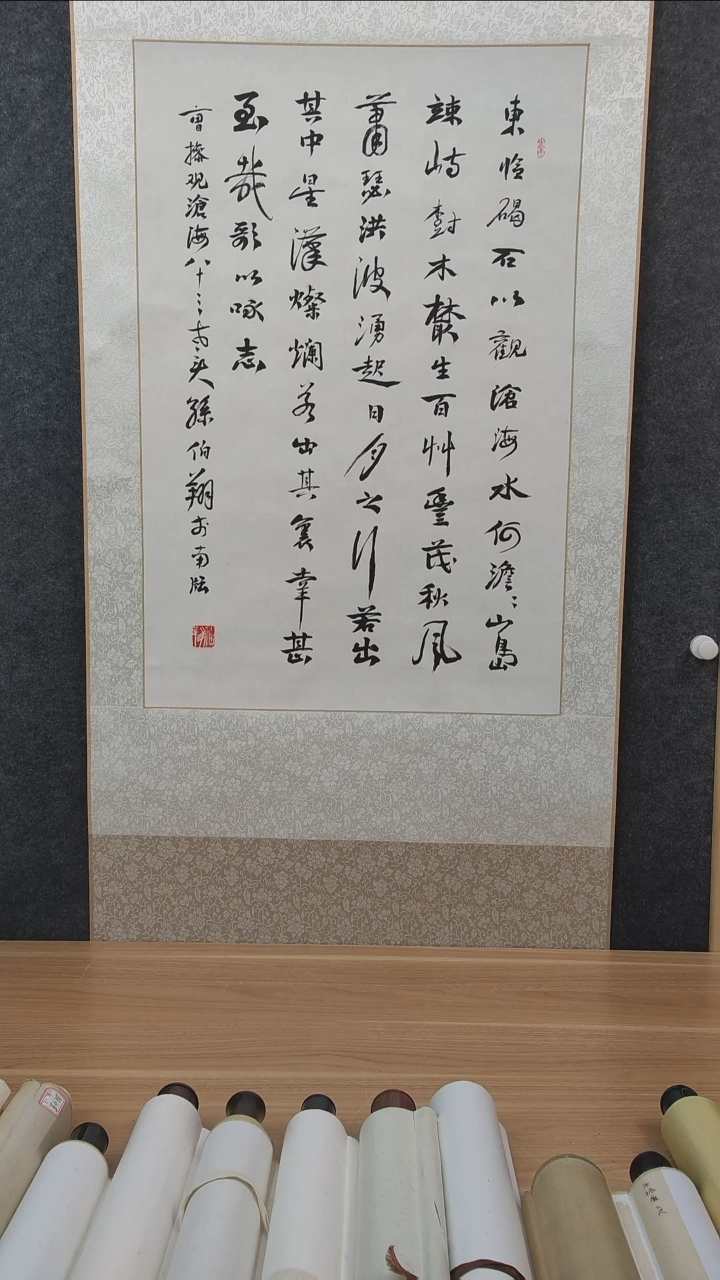 東臨碣石以觀滄海水何澹〻山島
竦峙樹木叢生百艸豐茂秋風
蕭瑟洪波湧起日月之行若出
其中星漢燦爛若出其裏幸甚
至哉歌以咏志
曹操观滄海八十叟孫伯翔於南